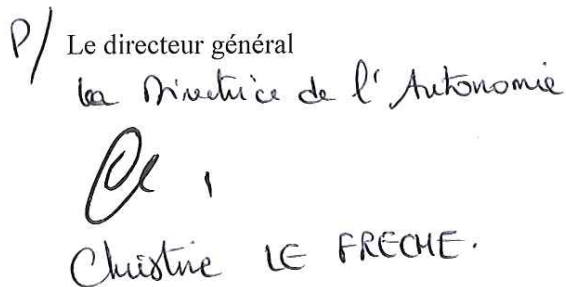 P/ Le directeur général
La Directrice de l'Autonomie
Christine LE FRECHE.